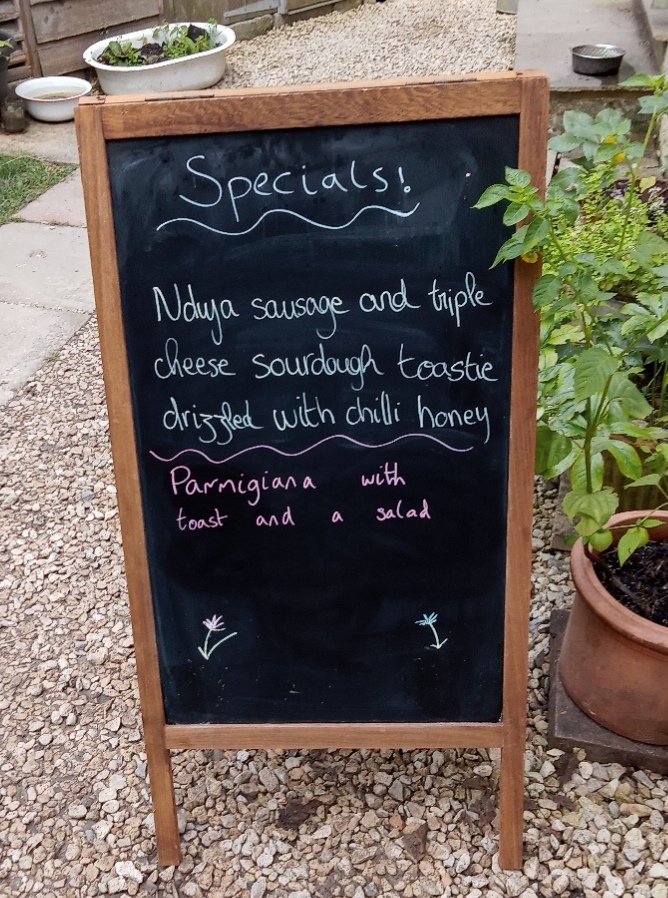 Specials!
Nduja sausage and triple
cheese sourdough toastie
drizzled with chilli honey
Parmigiana with
toast and a salad